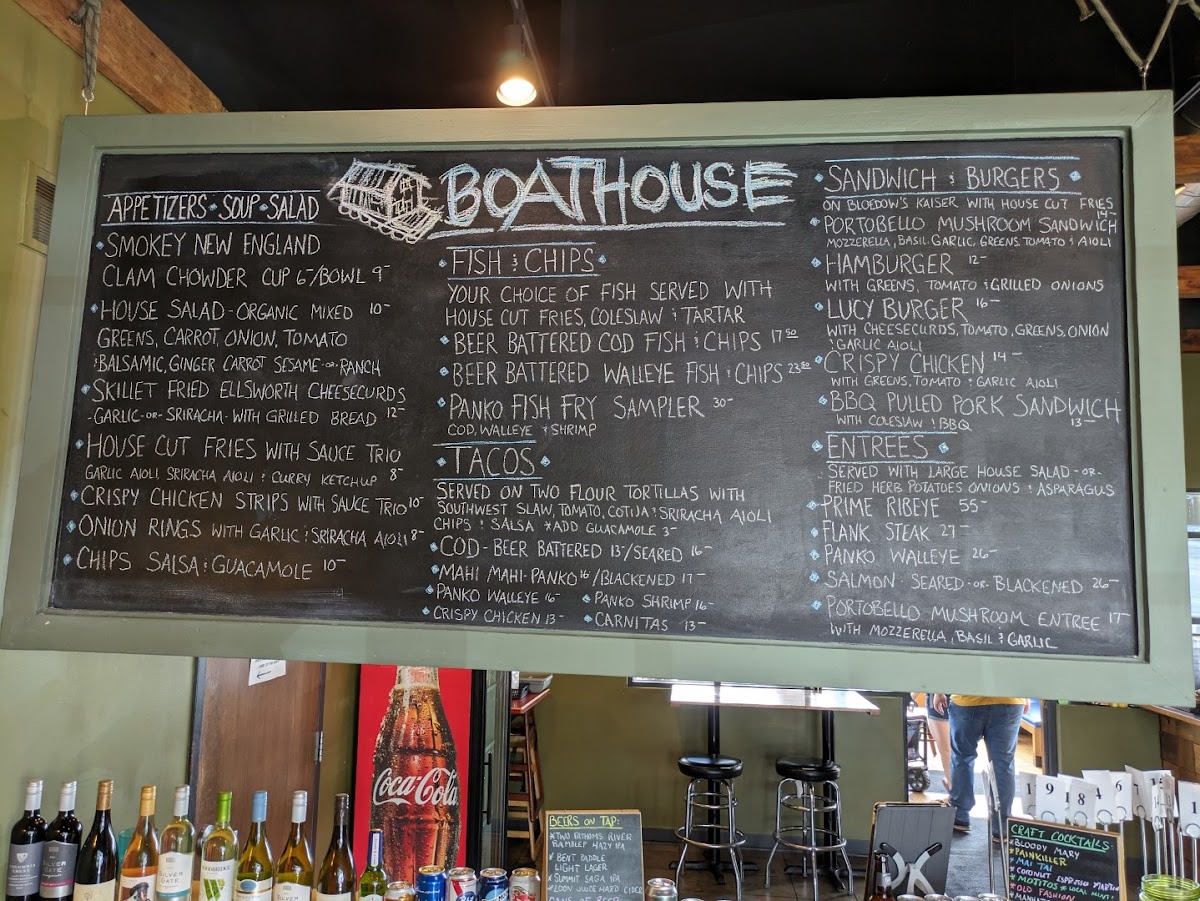 BOATHOUSE
APPETIZERS · SOUP · SALAD
SMOKEY NEW ENGLAND
CLAM CHOWDER CUP 6-/BOWL 9-
HOUSE SALAD - ORGANIC MIXED 10-
GREENS, CARROT, ONION, TOMATO
& BALSAMIC, GINGER CARROT SESAME -OR- RANCH
SKILLET FRIED ELLSWORTH CHEESECURDS
-GARLIC -OR- SRIRACHA- WITH GRILLED BREAD 12-
HOUSE CUT FRIES WITH SAUCE TRIO
GARLIC AIOLI SRIRACHA AIOLI & CURRY KETCHUP 8-
CRISPY CHICKEN STRIPS WITH SAUCE TRIO 10-
ONION RINGS WITH GARLIC & SRIRACHA AIOLI 8-
CHIPS SALSA & GUACAMOLE 10-
FISH & CHIPS
YOUR CHOICE OF FISH SERVED WITH
HOUSE CUT FRIES, COLESLAW & TARTAR
BEER BATTERED COD FISH & CHIPS 17 50
BEER BATTERED WALLEYE FISH & CHIPS 23 50
PANKO FISH FRY SAMPLER 30-
COD, WALLEYE & SHRIMP
TACOS
SERVED ON TWO FLOUR TORTILLAS WITH
SOUTHWEST SLAW, TOMATO, COTIJA & SRIRACHA AIOLI
CHIPS & SALSA *ADD GUACAMOLE 3-
COD - BEER BATTERED 13-/SEARED 16-
MAHI MAHI - PANKO 16-/BLACKENED 17-
PANKO WALLEYE 16- PANKO SHRIMP 16-
CRISPY CHICKEN 13- CARNITAS 13-
SANDWICH & BURGERS
ON BLOEDOW'S KAISER WITH HOUSE CUT FRIES
PORTOBELLO MUSHROOM SANDWICH 14-
MOZZERELLA, BASIL GARLIC, GREENS, TOMATO & AIOLI
HAMBURGER 12-
WITH GREENS, TOMATO & GRILLED ONIONS
LUCY BURGER 16-
WITH CHEESECURDS, TOMATO, GREENS, ONION
& GARLIC AIOLI
CRISPY CHICKEN 14-
WITH GREENS, TOMATO & GARLIC AIOLI
BBQ PULLED PORK SANDWICH
WITH COLESLAW & BBQ 13-
ENTREES
SERVED WITH LARGE HOUSE SALAD -OR-
FRIED HERB POTATOES ONIONS & ASPARAGUS
PRIME RIBEYE 55-
FLANK STEAK 27-
PANKO WALLEYE 26-
SALMON SEARED -OR- BLACKENED 26-
PORTOBELLO MUSHROOM ENTREE 17-
WITH MOZZERELLA, BASIL & GARLIC
Coca-Cola
BEERS ON TAP:
*TWO FATHOMS RIVER
RAMBLER HAZY IPA
*BENT PADDLE
LIGHT LAGER
*SUMMIT SAGA IPA
*LOON JUICE HARD CIDER
CANS OF BEER
CRAFT COCKTAILS:
*BLOODY MARY
*PAINKILLER
*MAI TAI
*COCONUT ESPRESSO MARTINI
*MOJITOS *LOCAL MINT!
*OLD FASHION
1 9 18 4 6